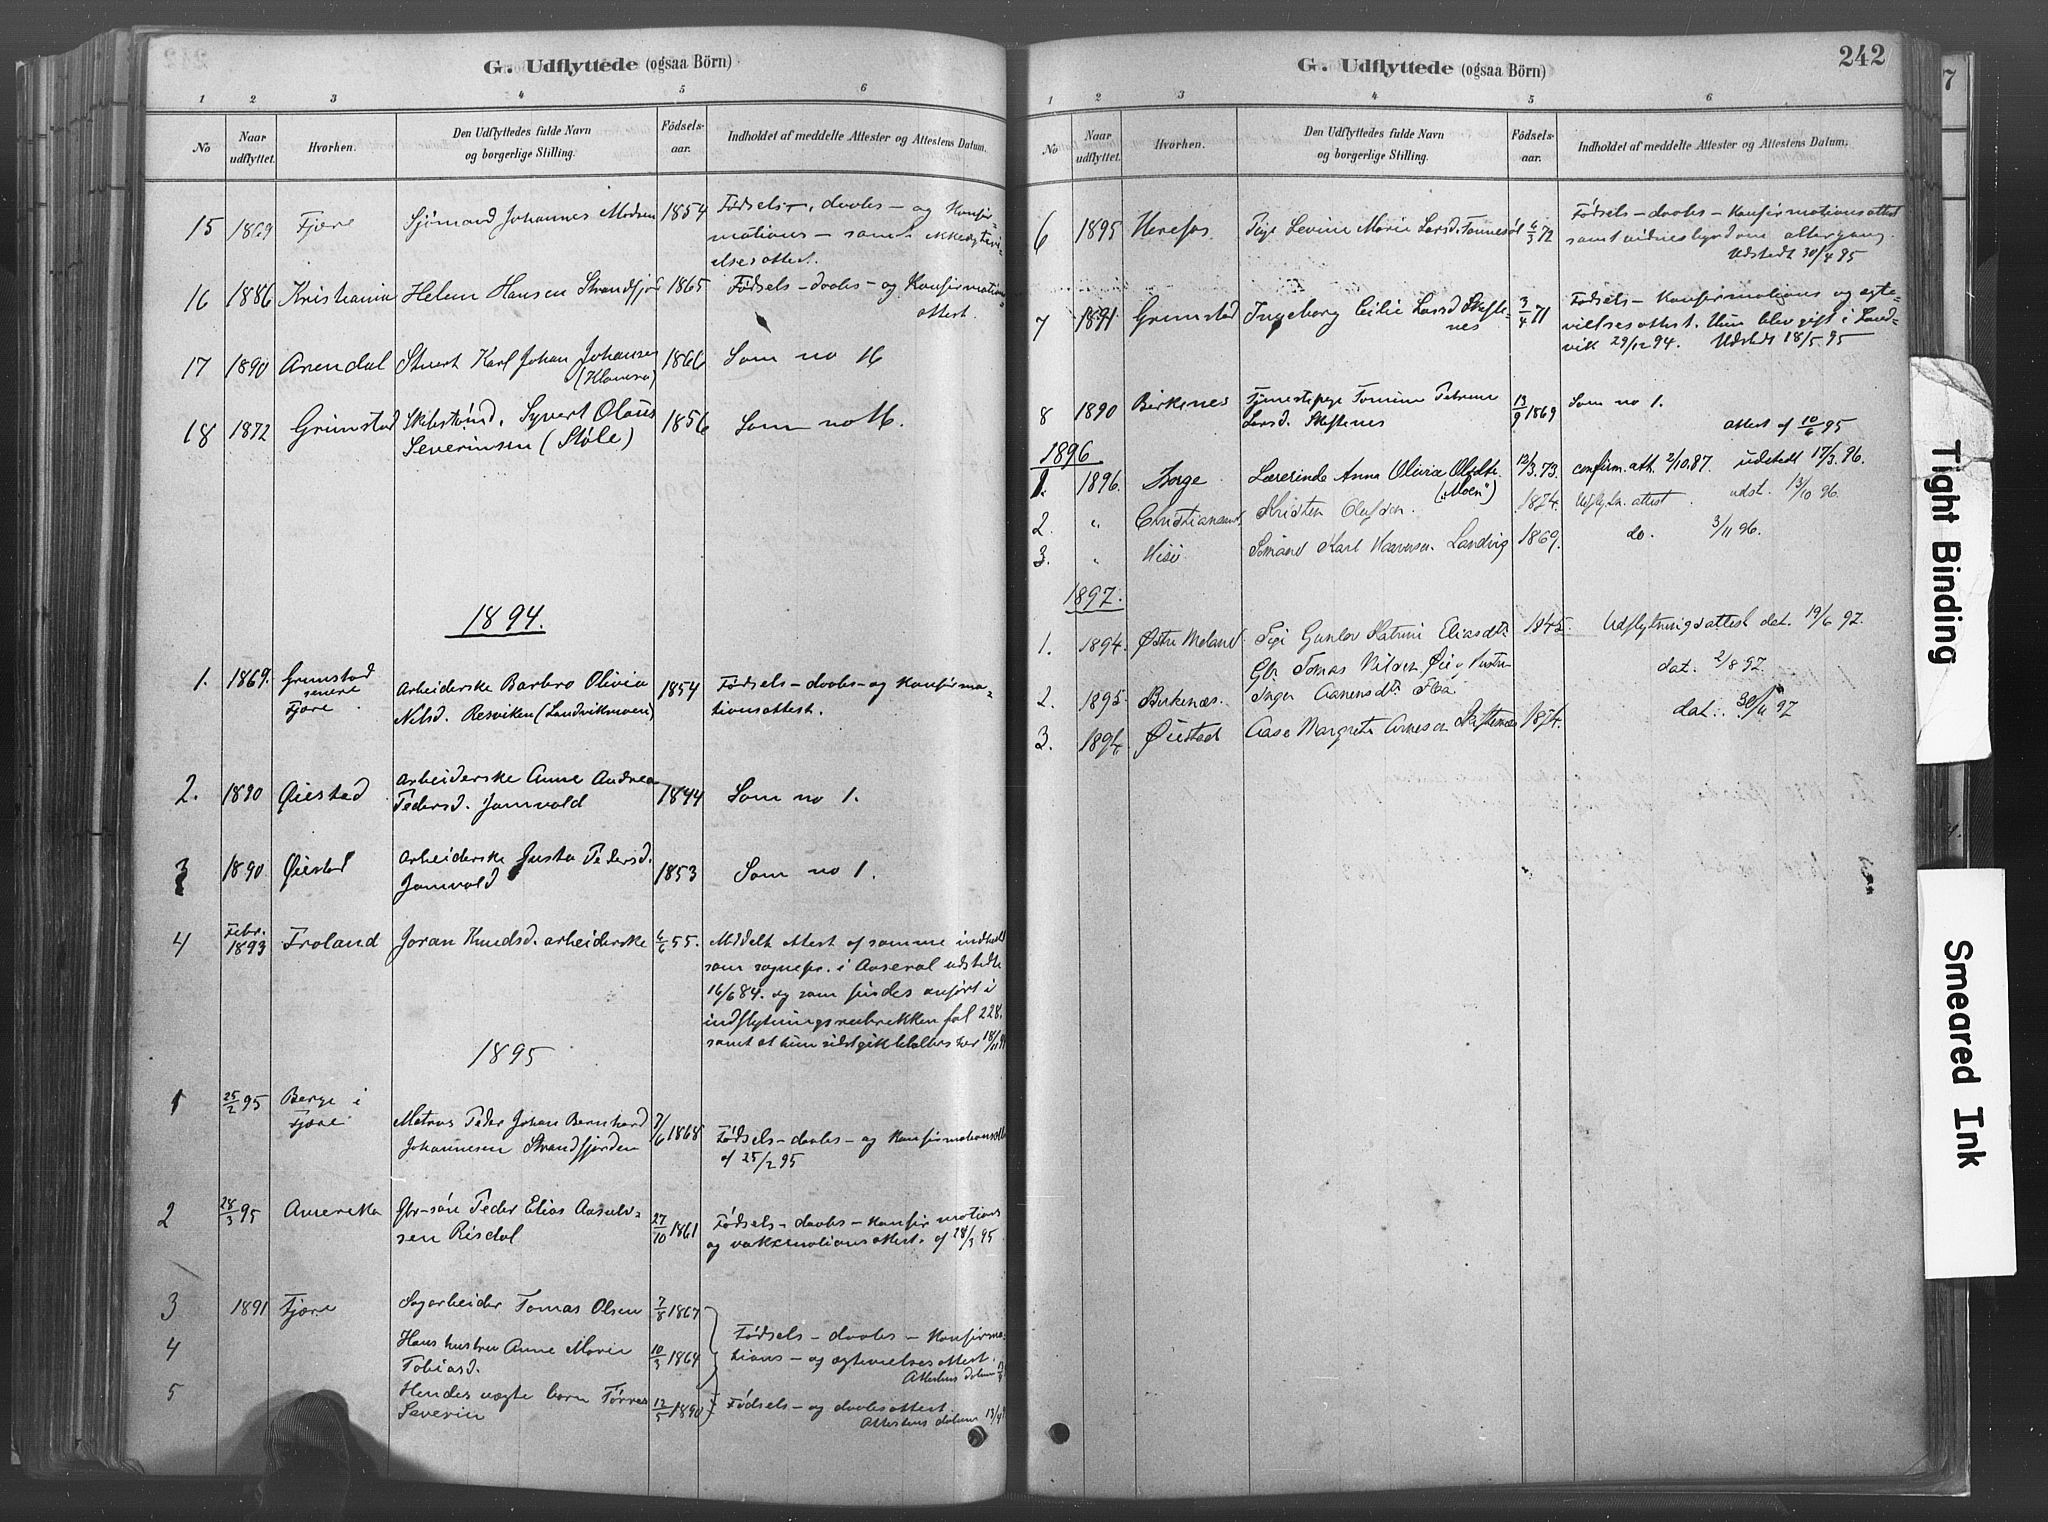 G. Udflyttede (ogsaa Börn)
1 2 3 4 5 6
No
Naar udflyttet.
Hvorhen.
Den Udflyttedes fulde Navn og borgerlige Stilling.
Födsels-aar.
Indholdet af meddelte Attester og Attestens Datum.
15 1869 Fjære Sjømand Johannes Madsen 1854 Fødsels-, daabs- og Konfir-
mations- samt ikkeægtevi-
elsesattest.
16 1886 Kristiania Helene Hansen Strandfjor 1865 Fødsels- daabs- og Konfirmations
attest.
17 1890 Arendal Stuert Karl Johan Johansen 1866 Som no 16
18 1872 Grimstad Syvert Olaus 1856 Som no 16.
Severinsen (Støle)
1894.
1. 1869. Grimstad Arbeiderske Barbro Olivia 1854 Fødsels- daabs- og Konfirma-
senere Fjære Nilsd. Resviken (Landviksmoen) tionsattest.
2. 1890 Øiestad Arbeiderske Anne Andrea 1844 Som no 1.
Pedersd. Jomvold
3 1890 Øiestad Arbeiderske Gusta Pedersd. 1853 Som no 1.
Jomvold
4 Febr. 1893 Froland Joran Knudsd. arbeiderske 6/6 55. Meddelt attest af samme indhold
som sognepr. i Aaseral udstedte
16/6 84. og som findes anført i
indflytningsrubrikken fol 228.
samt at hun sidst gik til alters her 18/11
1895
1 25/2 95 Berge i
Fjære Matros Peder Johan Bernhard 7/6 1868 Fødsels- daabs- og Konfirmationsatt
Johannesen Strandfjorden af 25/2 95
2 28/3 95 Amerika Gbr-søn Peder Elias Aanulv- 27/10 1861 Fødsels- daabs- Konfirmations
sen Risdal og vakxinationsattest. af 28/3 95
3 1891 Fjære Sagarbeider Tomas Olsen 7/8 1867
4 Hans hustru Anne Marie 10/3 1864 Fødsels- daabs- Konfirma-
Tobiasd. tions- og ægtevielsesattest.
Attestens datum 13/4
5 Hendes uægte barn Tørres 12/5 1890 Fødsels- og daabsattest.
Severin Attestens datum 13/4
G. Udflyttede (ogsaa Börn)
242
1 2 3 4 5 6
No
Naar udflyttet.
Hvorhen.
Den Udflyttedes fulde Navn og borgerlige Stilling.
Födsels-aar.
Indholdet af meddelte Attester og Attestens Datum.
6 1895 Herefos Pige Levine Marie Larsd. Tønnesøl 6/3 72 Fødsels- daabs- Konfirmationsattest
samt vidnesbyrd om altergang.
Udstedt 30/4 95
7 1891 Grimstad Ingeborg Cicilie Larsd Skifte-
nes 3/4 71 Fødsels- Konfirmations og ægte-
vielsesattest. Hun blev gift i Land-
vik 29/12 94. Udstedt 18/5 95
8 1890 Birkenes Tjenestepige Tomine Petrine 13/9 1869 Som no 1.
Larsd. Skiftenes attest af 10/6 95
1896
1. 1896. Borge Lærerinde Anna Olivia Olsdtr. 12/3.73. confirm. att. 2/10.87. udstedt 17/3.96.
("Moen")
2. " Christiansand. Kristen Olufsen. 1874. Udflytn. attest. udst. 13/10 96.
3. " Hisø Sømand Karl Landvig 1869. do. 3/11 96.
1897.
1. 1894. Østre Moland Pige Gunlov Katrine Eliasdtr 1845. Udflytningsattest dat. 19/6 97.
Gbr Tomas Øie og Hustru
2. 1895. Birkenæs. Inger Aanensdtr dat. 2/8 97.
3. 1894. Øiestad Aase Margrete Arnesen Skiftenæs 1874. dat. 30/11 97
Tight Binding
Smeared Ink
7